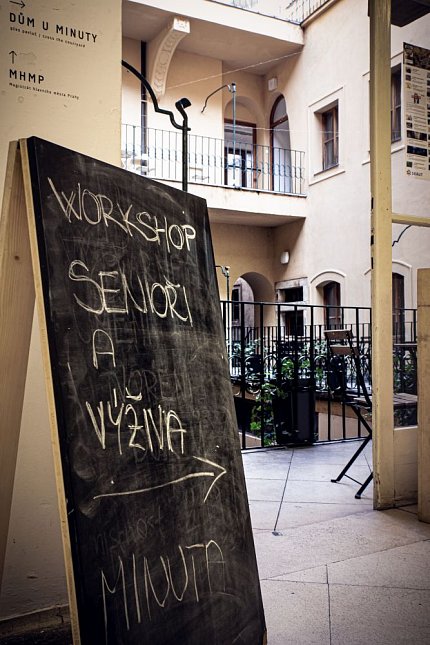 DŮM U MINUTY
přes pavlač / cross the courtyard
MHMP
Magistrát hlavního města Prahy
WORKSHOP
SENIOŘI
A
VÝŽIVA
MINUTA